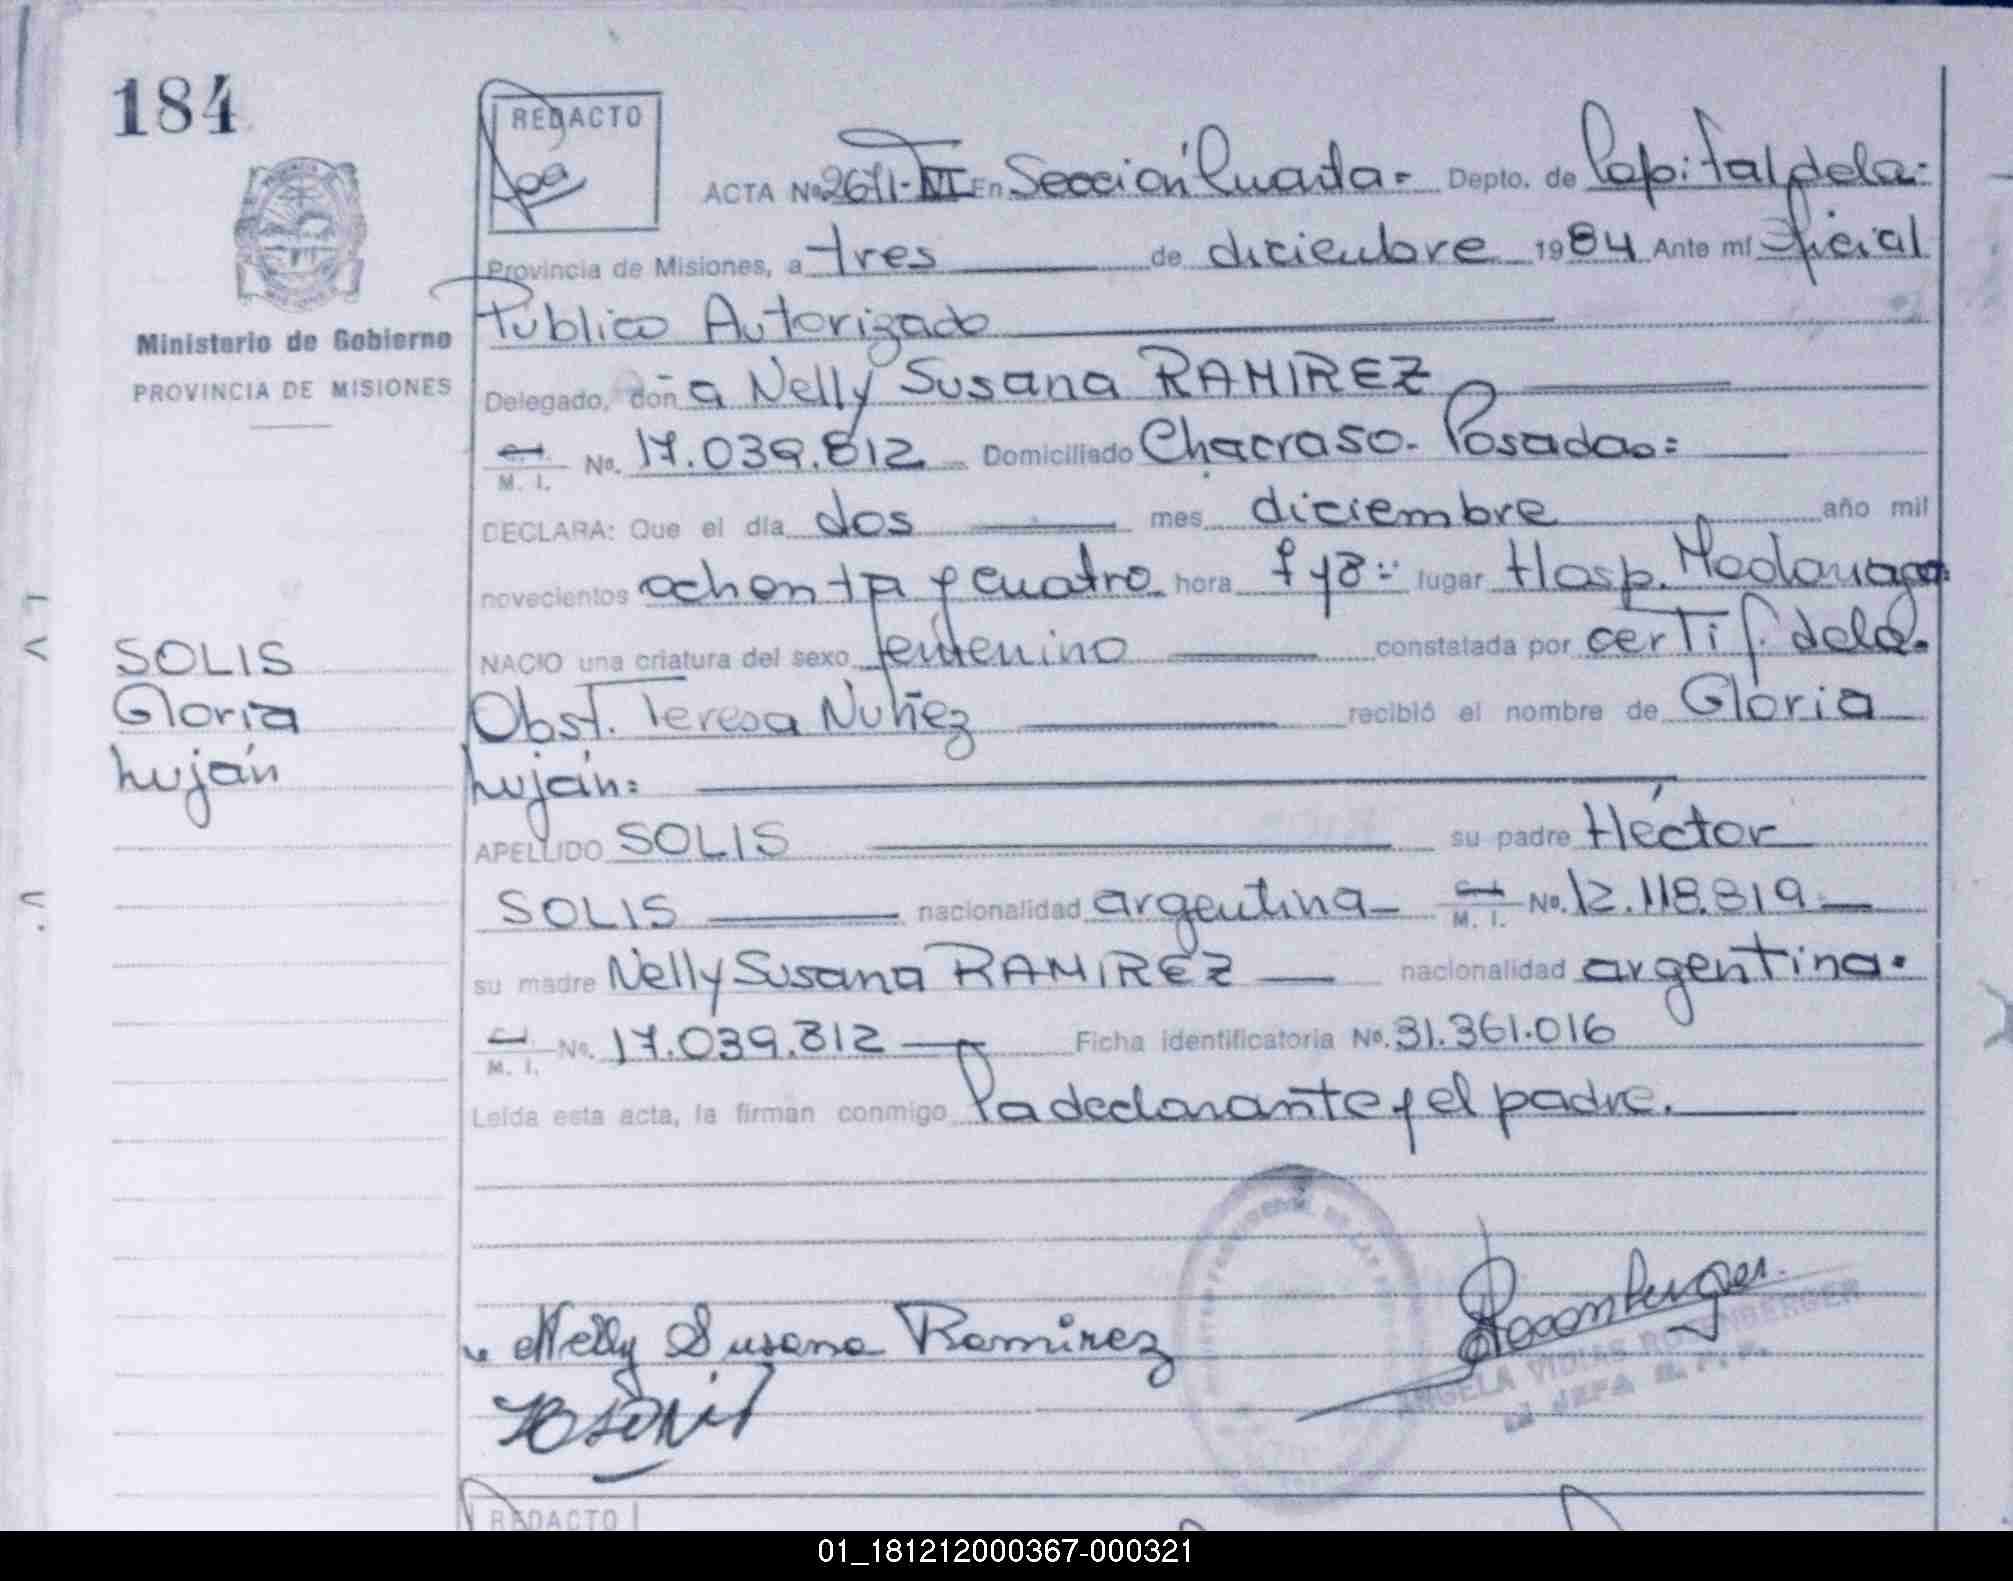 184
REDACTO
ACTA Nº 2671-VI En Sección Cuarta.- Depto. de Capital de la.
Provincia de Misiones, a tres de diciembre 1984 Ante mí Oficial
Público Autorizado
Ministerio de Gobierno
PROVINCIA DE MISIONES
Delegado, doña Nelly Susana RAMIREZ
M. I. No. 17.039.812 Domiciliado Chacra 50. Posadas=
DECLARA: Que el día dos mes diciembre año mil
novecientos ochenta y cuatro hora 7 y 8 lugar Hosp. Madariaga
NACIO una criatura del sexo femenino constatada por certif. de la.
Obst. Teresa Nuñez recibió el nombre de Gloria
Luján=
SOLIS
Gloria
Luján
APELLIDO SOLIS su padre Héctor
SOLIS nacionalidad argentina M. I. No. 12.118.819
su madre Nelly Susana RAMIREZ nacionalidad argentina.
M. I. No. 17.039.812 Ficha identificatoria No. 31.361.016
Leída esta acta, la firman conmigo la declarante y el padre.
Nelly Susana Ramirez
ANGELA ROSENBERGER
JEFA
REDACTO
01_181212000367-000321